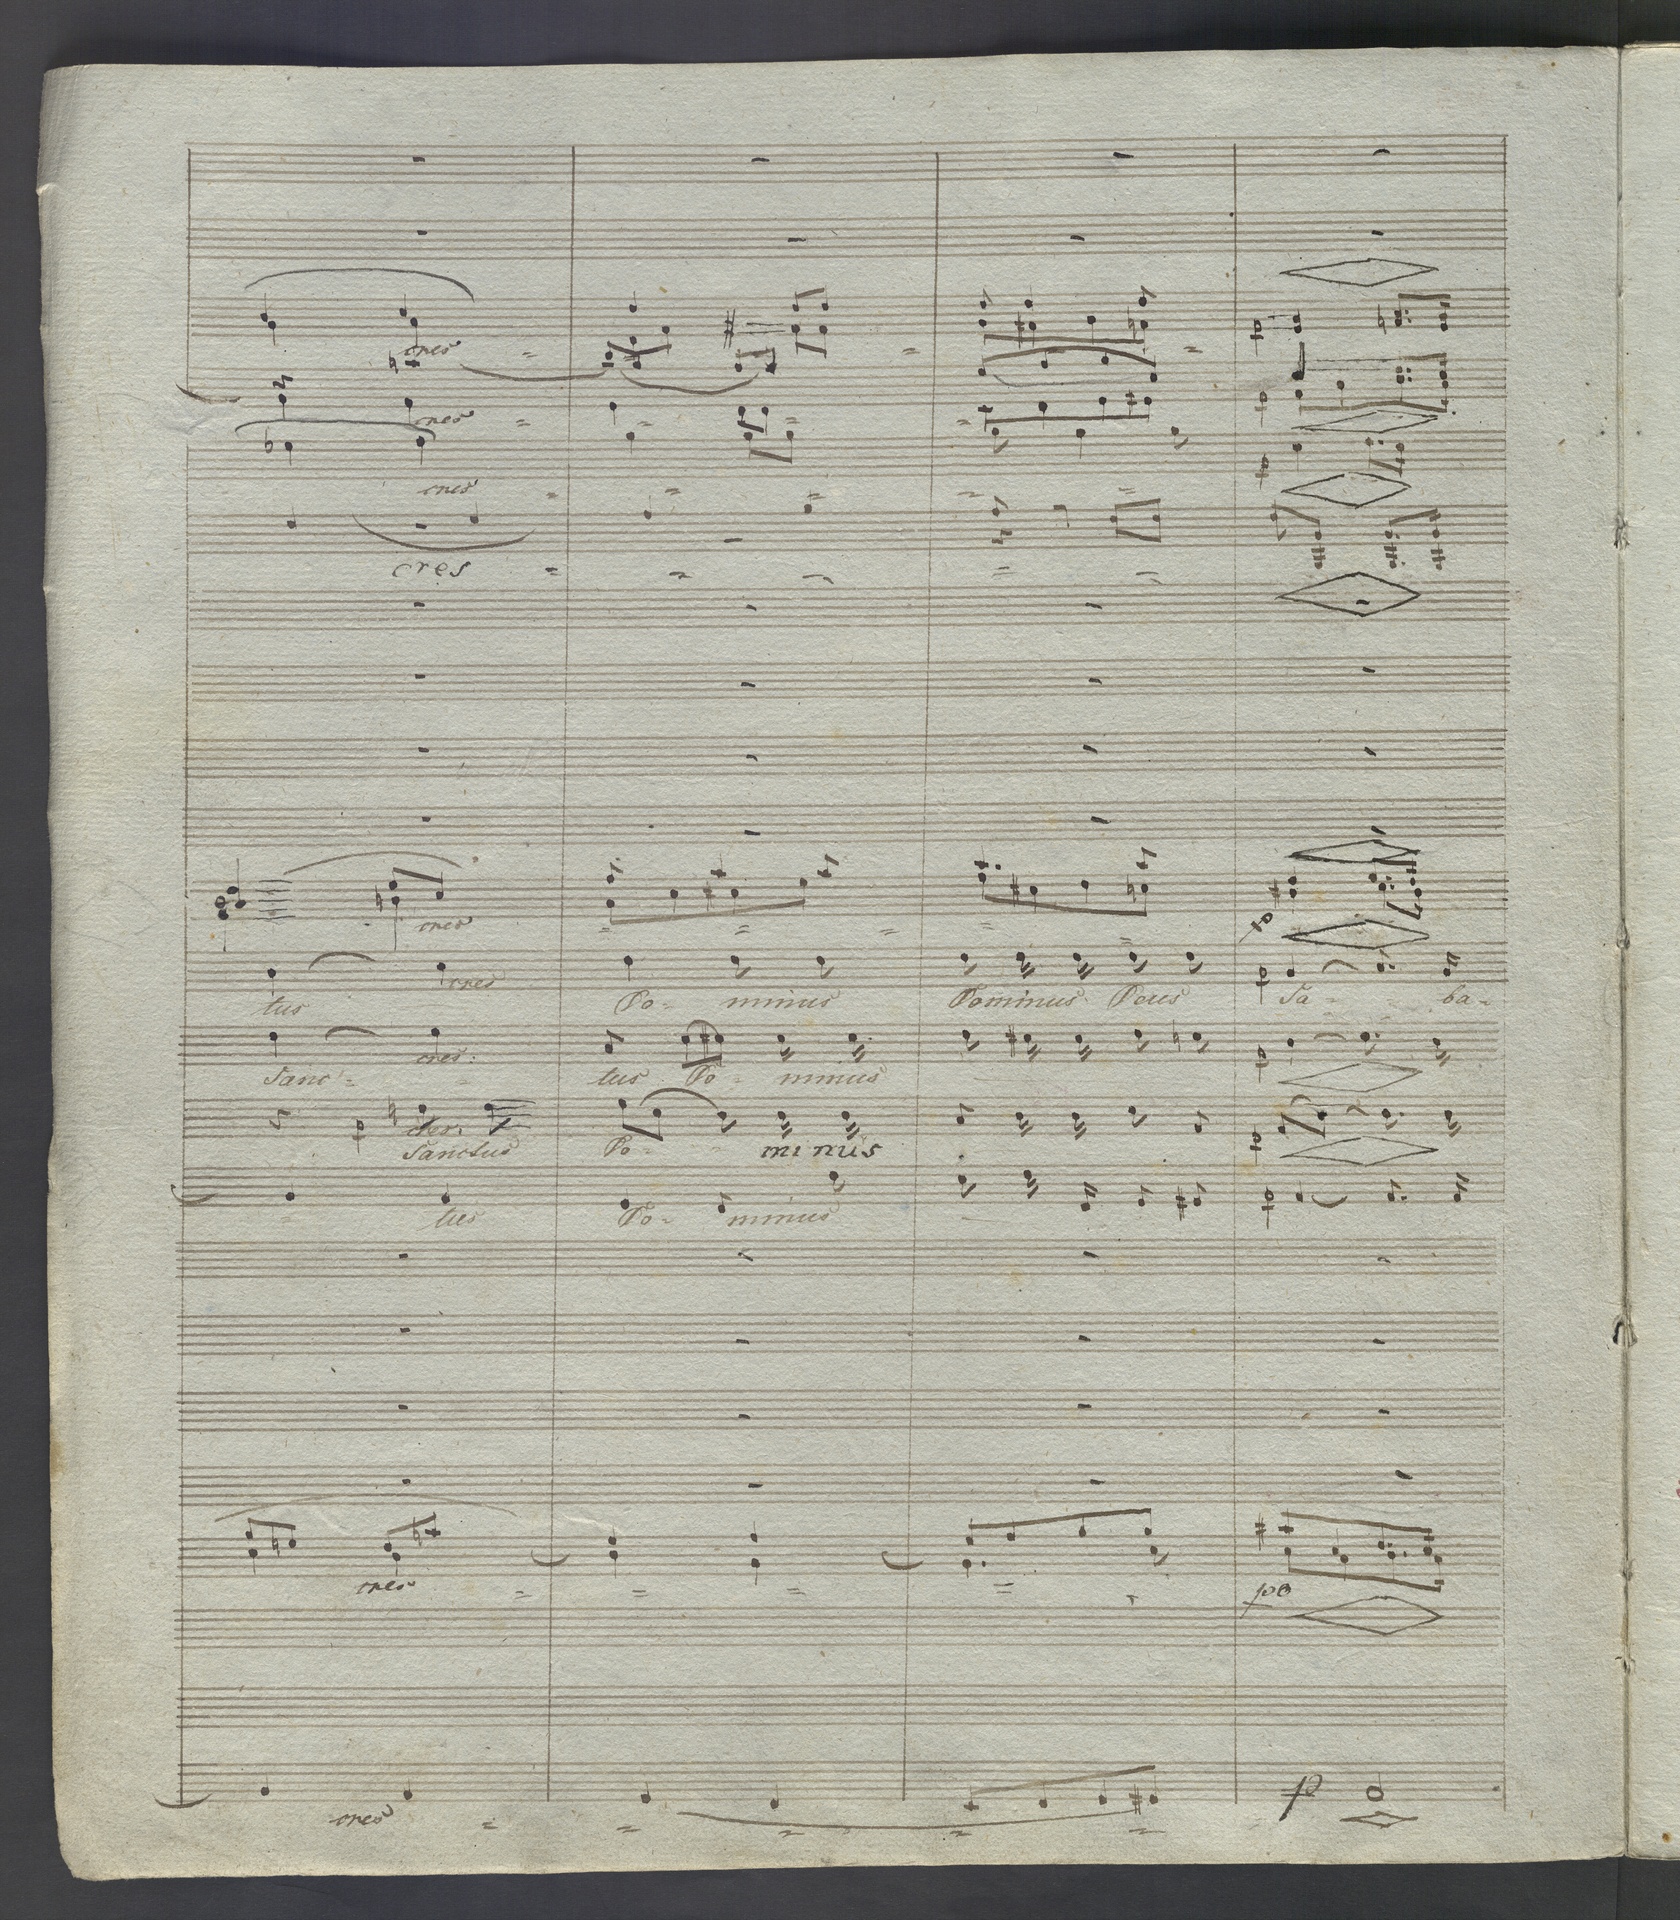 cres
cres
cres
cres
cres
cres
tus Do- minus Dominus Deus Sa - ba-
cres:
Sanc- tus Do- minus
cres.
Sanctus Do- minus
tus Do- minus
cres
po
p
cres